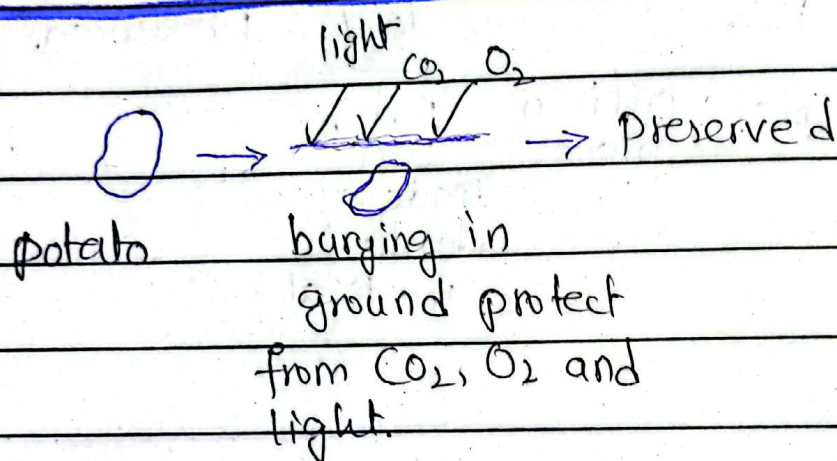 light
CO₂ O₂
preserved
potato
burying in
ground protect
from CO₂, O₂ and
light.